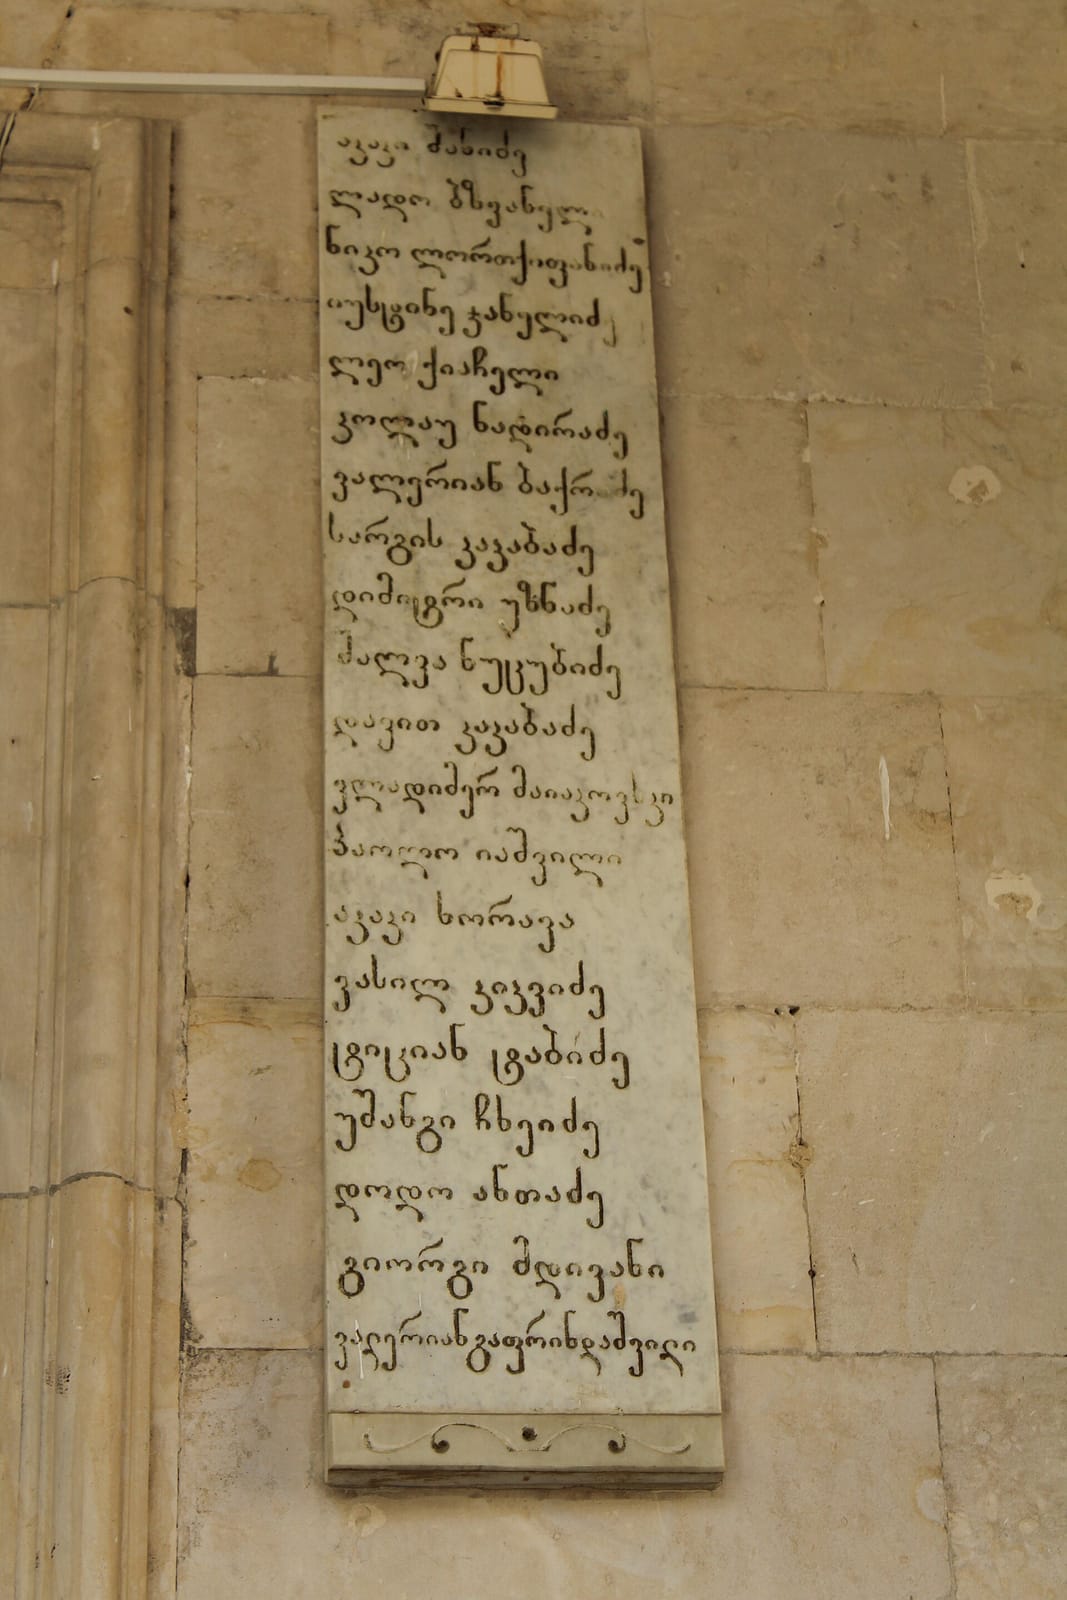 აკაკი შანიძე
ლადო ბზვანელი
ნიკო ლორთქიფანიძე
იუსტინე ჯანელიძე
ლეო ქიაჩელი
კოლაუ ნადირაძე
ვალერიან ბაქრაძე
სარგის კაკაბაძე
დიმიტრი უზნაძე
შალვა ნუცუბიძე
დავით კაკაბაძე
ვლადიმერ მაიაკოვსკი
პაოლო იაშვილი
აკაკი ხორავა
ვასილ კიკვიძე
ტიციან ტაბიძე
უშანგი ჩხეიძე
დოდო ანთაძე
გიორგი მდივანი
ვალერიან გაფრინდაშვილი